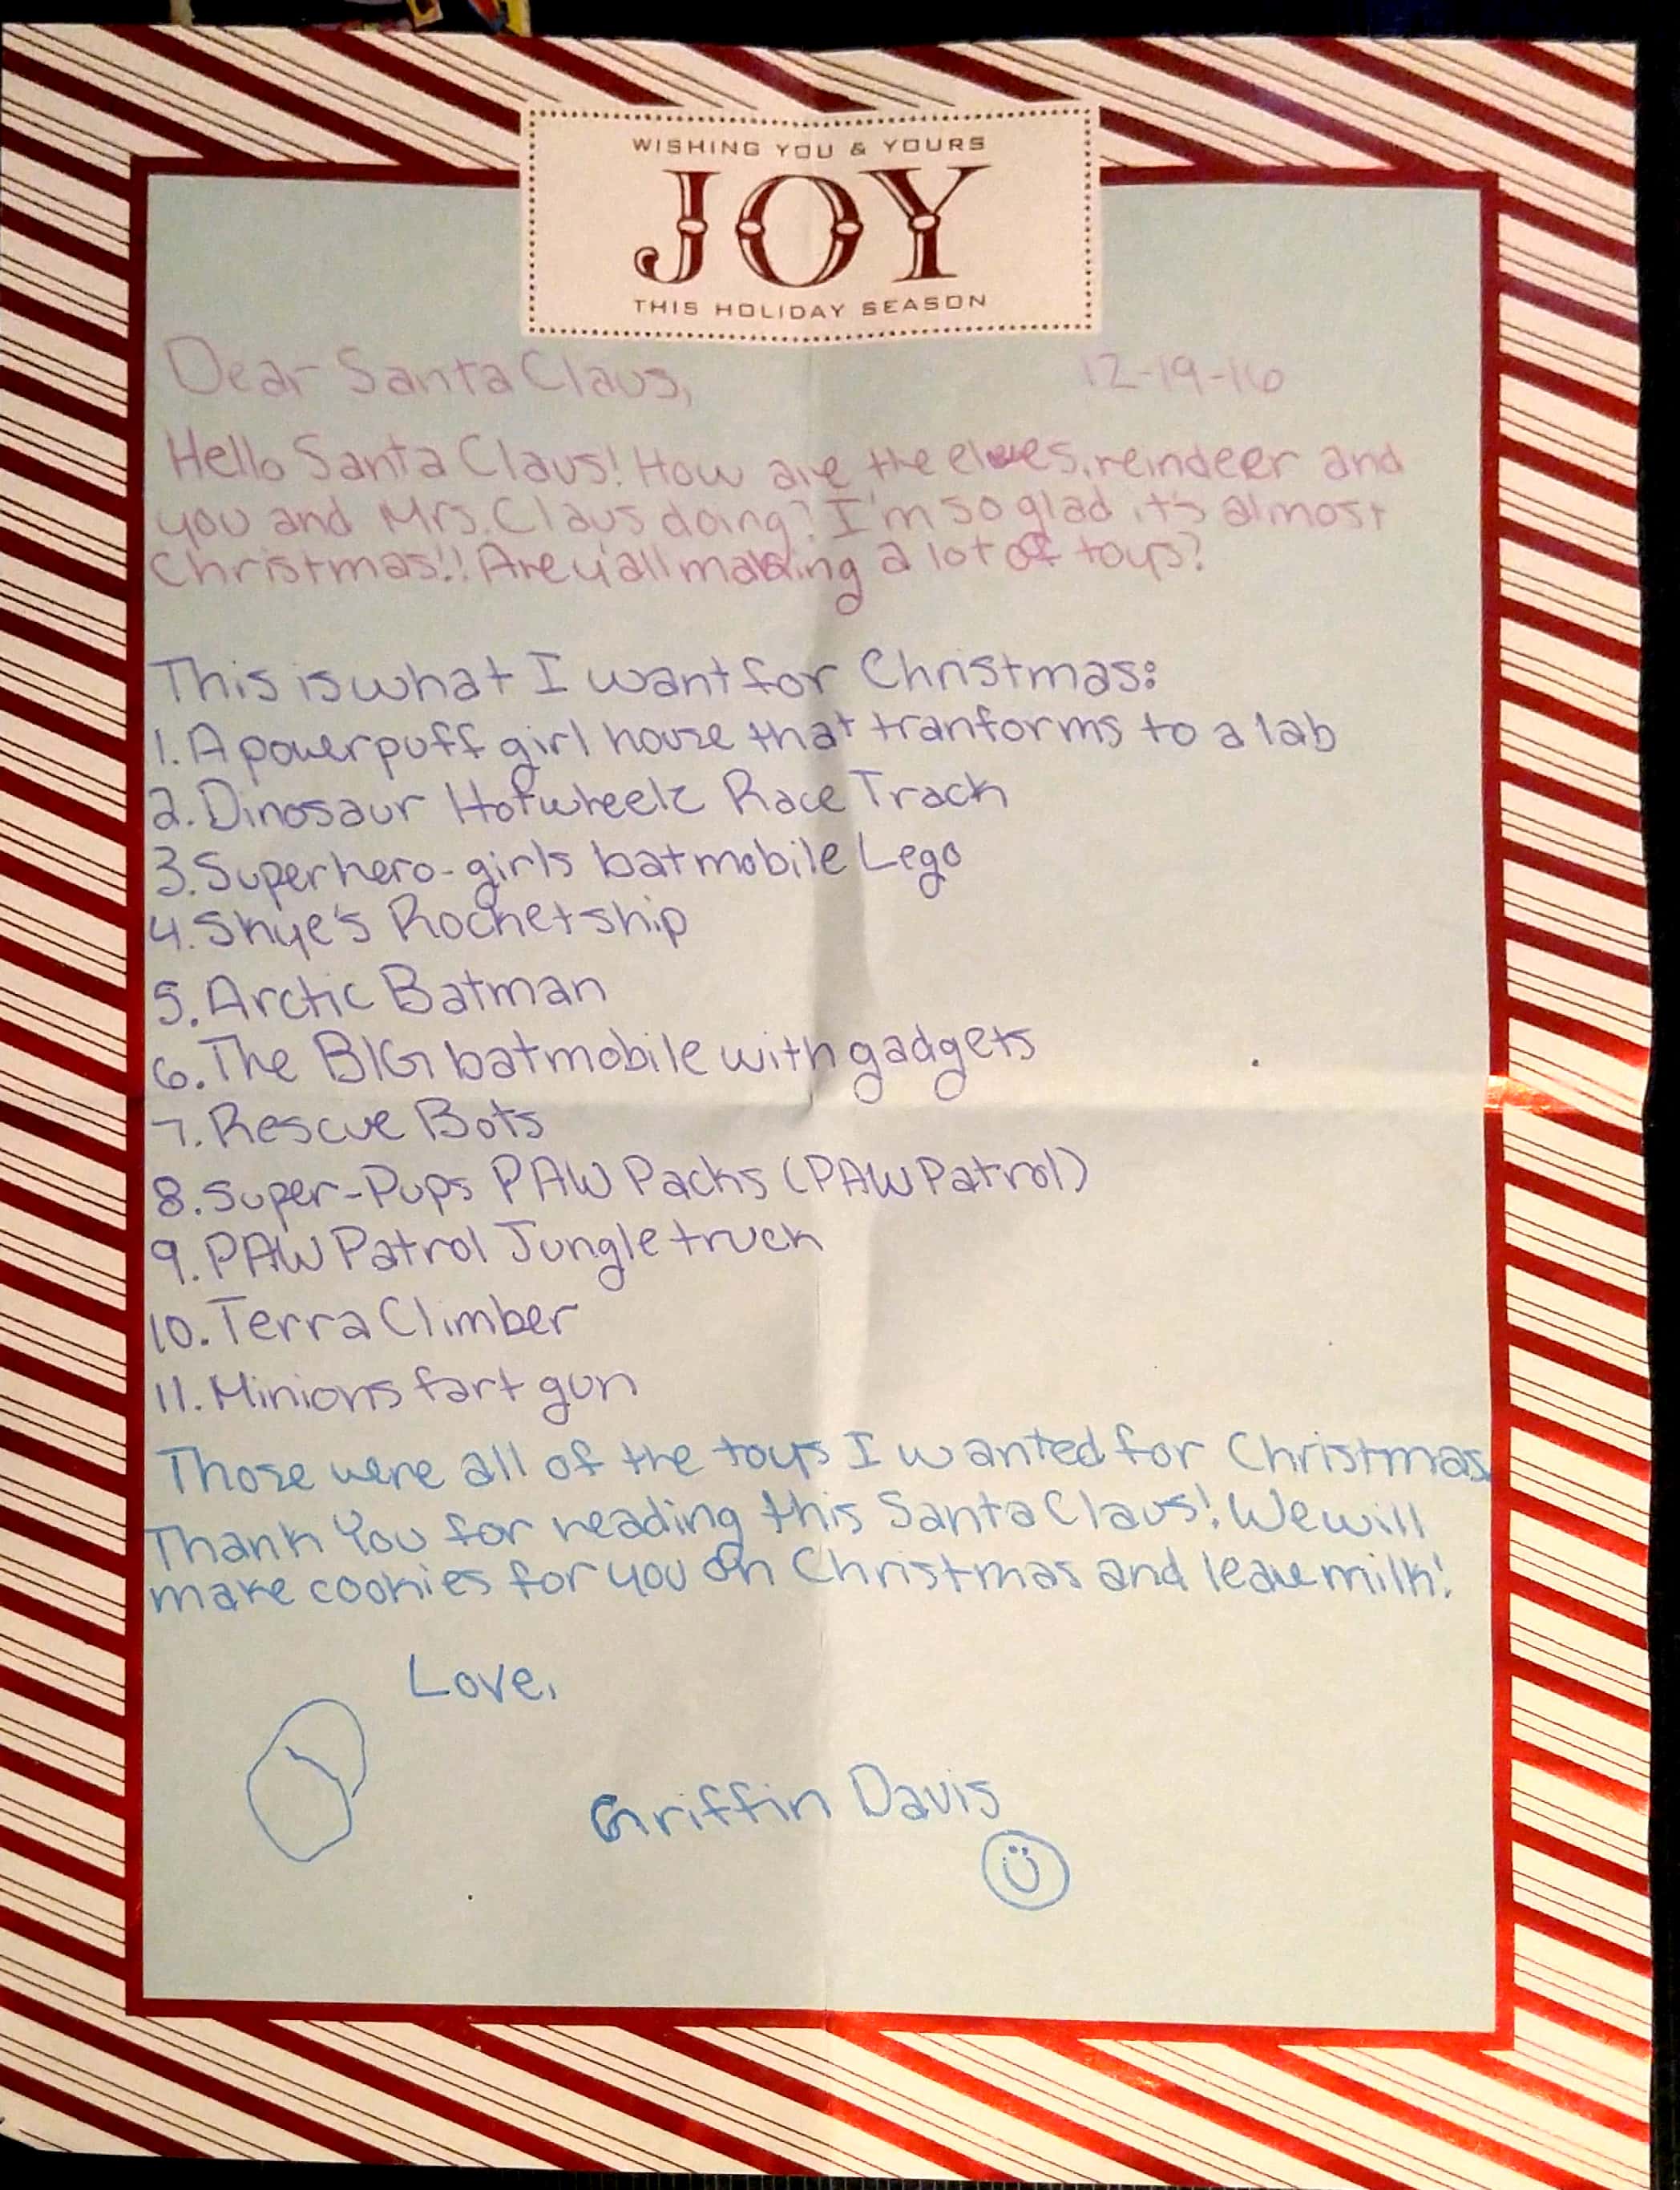 WISHING YOU & YOURS
JOY
THIS HOLIDAY SEASON
Dear Santa Claus, 12-19-16
Hello Santa Claus! How are the elves, reindeer and
you and Mrs. Claus doing? I'm so glad it's almost
Christmas!! Are y'all making a lot of toys?
This is what I want for Christmas:
1. A powerpuff girl house that tranforms to a lab
2. Dinosaur Hotwheelz Race Track
3. Superhero-girls batmobile Lego
4. Skye's Rocketship
5. Arctic Batman
6. The BIG batmobile with gadgets
7. Rescue Bots
8. Super-Pups PAW Packs (PAW Patrol)
9. PAW Patrol Jungle truck
10. Terra Climber
11. Minions fart gun
Those were all of the toys I wanted for Christmas.
Thank You for reading this Santa Claus! We will
make cookies for you on Christmas and leave milk!
Love,
Griffin Davis